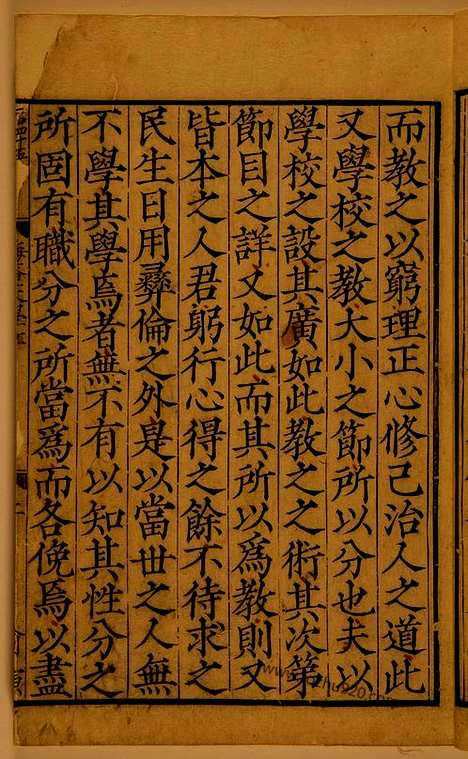 而教之以窮理正心修己治人之道此
又學校之教大小之節所以分也夫以
學校之設其廣如此教之之術其次第
節目之詳又如此而其所以爲教則又
皆本之人君躬行心得之餘不待求之
民生日用彝倫之外是以當世之人無
不學其學焉者無不有以知其性分之
所固有職分之所當爲而各俛焉以盡